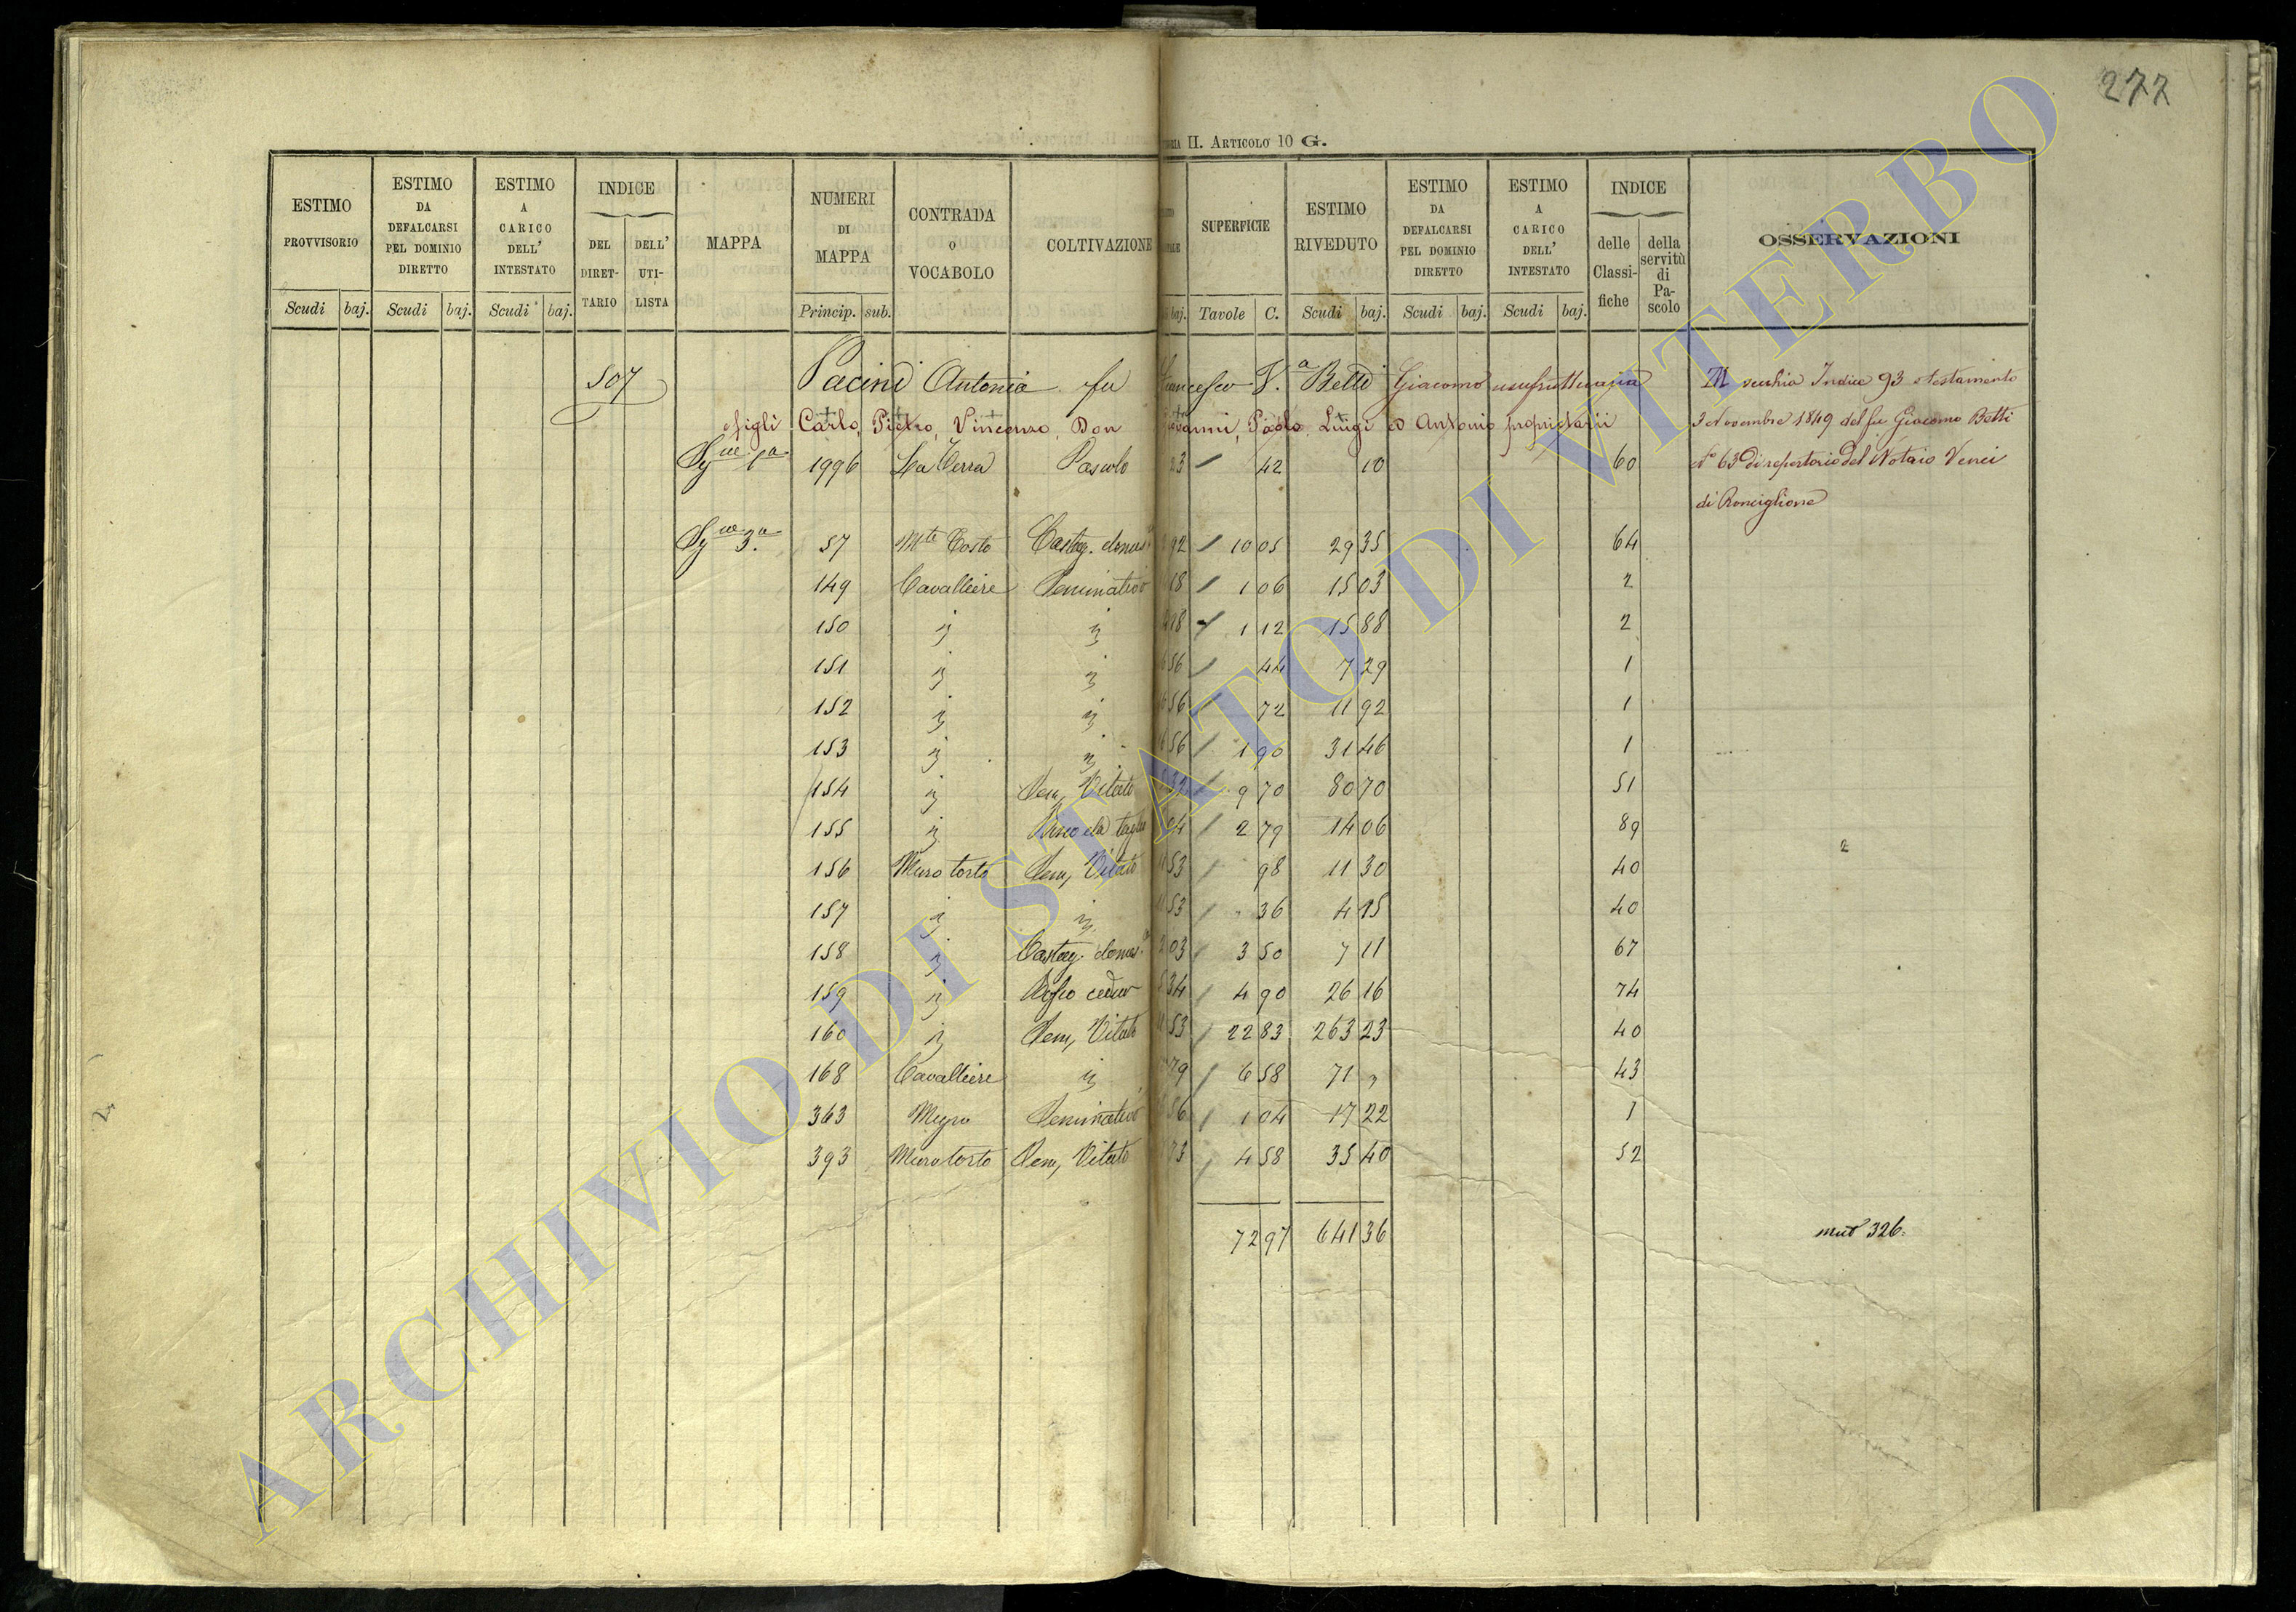 277
II. ARTICOLO 10 G.
ESTIMO PROVVISORIO | ESTIMO DA DEFALCARSI PEL DOMINIO DIRETTO | ESTIMO A CARICO DELL' INTESTATO | INDICE DEL DIRETTARIO | DELL' UTILISTA | MAPPA | NUMERI DI MAPPA | CONTRADA O VOCABOLO | COLTIVAZIONE | SUPERFICIE | ESTIMO RIVEDUTO | ESTIMO DA DEFALCARSI PEL DOMINIO DIRETTO | ESTIMO A CARICO DELL' INTESTATO | INDICE delle Classifiche | della servitù di Pascolo | OSSERVAZIONI
Scudi baj. Scudi baj. Scudi baj. Princip. sub. baj. Tavole C. Scudi baj. Scudi baj. Scudi baj.
507 Pacini Antonia fu Francesco V.a Betti Giacomo usufruttuaria
figli Carlo, Pietro, Vincenzo, Don Giovanni, Paolo, Luigi ed Antonio proprietarii
M vecchia Indice 93 Testamento
3 Novembre 1849 del fu Giacomo Betti
N° 63 di repertorio del Notaio Venci
di Ronciglione
1a 1996 La Terra Pascolo 23 / 42 10 60
3a 57 Mte Tosto Castag. domes. 92 / 10 05 29 35 64
149 Cavalliere Seminativo 18 / 1 06 15 03 2
150 " " 18 / 1 12 15 88 2
151 " " 56 / 44 7 29 1
152 " " 56 / 72 11 92 1
153 " " 56 / 1 90 31 46 1
154 " Sem, Vitato 32 / 9 70 80 70 51
155 " da taglio 04 / 2 79 14 06 89
156 Muro torto Sem, Vitato 53 / 98 11 30 40
157 " " 53 / 36 4 15 40
158 " Castag. domes. 03 / 3 50 7 11 67
159 " Bosco ceduo 34 / 4 90 26 16 74
160 " Sem, Vitato 53 / 22 83 263 23 40
168 Cavalliere " 79 / 6 58 71 " 43
363 Seminativo 56 / 1 04 17 22 1
393 Muro torto Sem, Vitato 73 / 4 58 35 40 52
72 97 641 36
mut 326.
ARCHIVIO DI STATO DI VITERBO